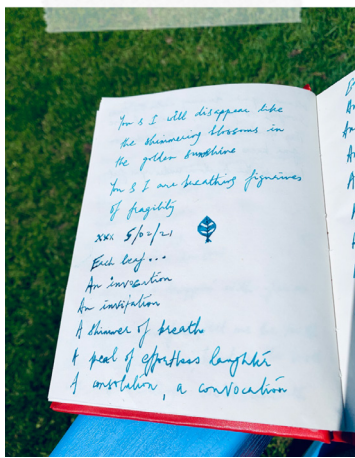 You & I will disappear like
the shimmering blossoms in
the golden sunshine
You & I are breathing figurines
of fragility
xxx 5/02/21
Each leaf...
An invocation
An invitation
A shimmer of breath
A peal of effortless laughter
A consolation, a convocation